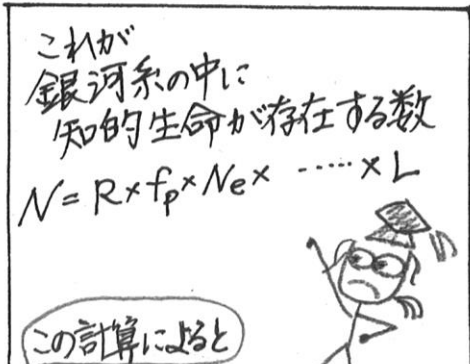 これが
銀河系の中に
知的生命が存在する数
N=R×fp×Ne× ……×L
この計算によると